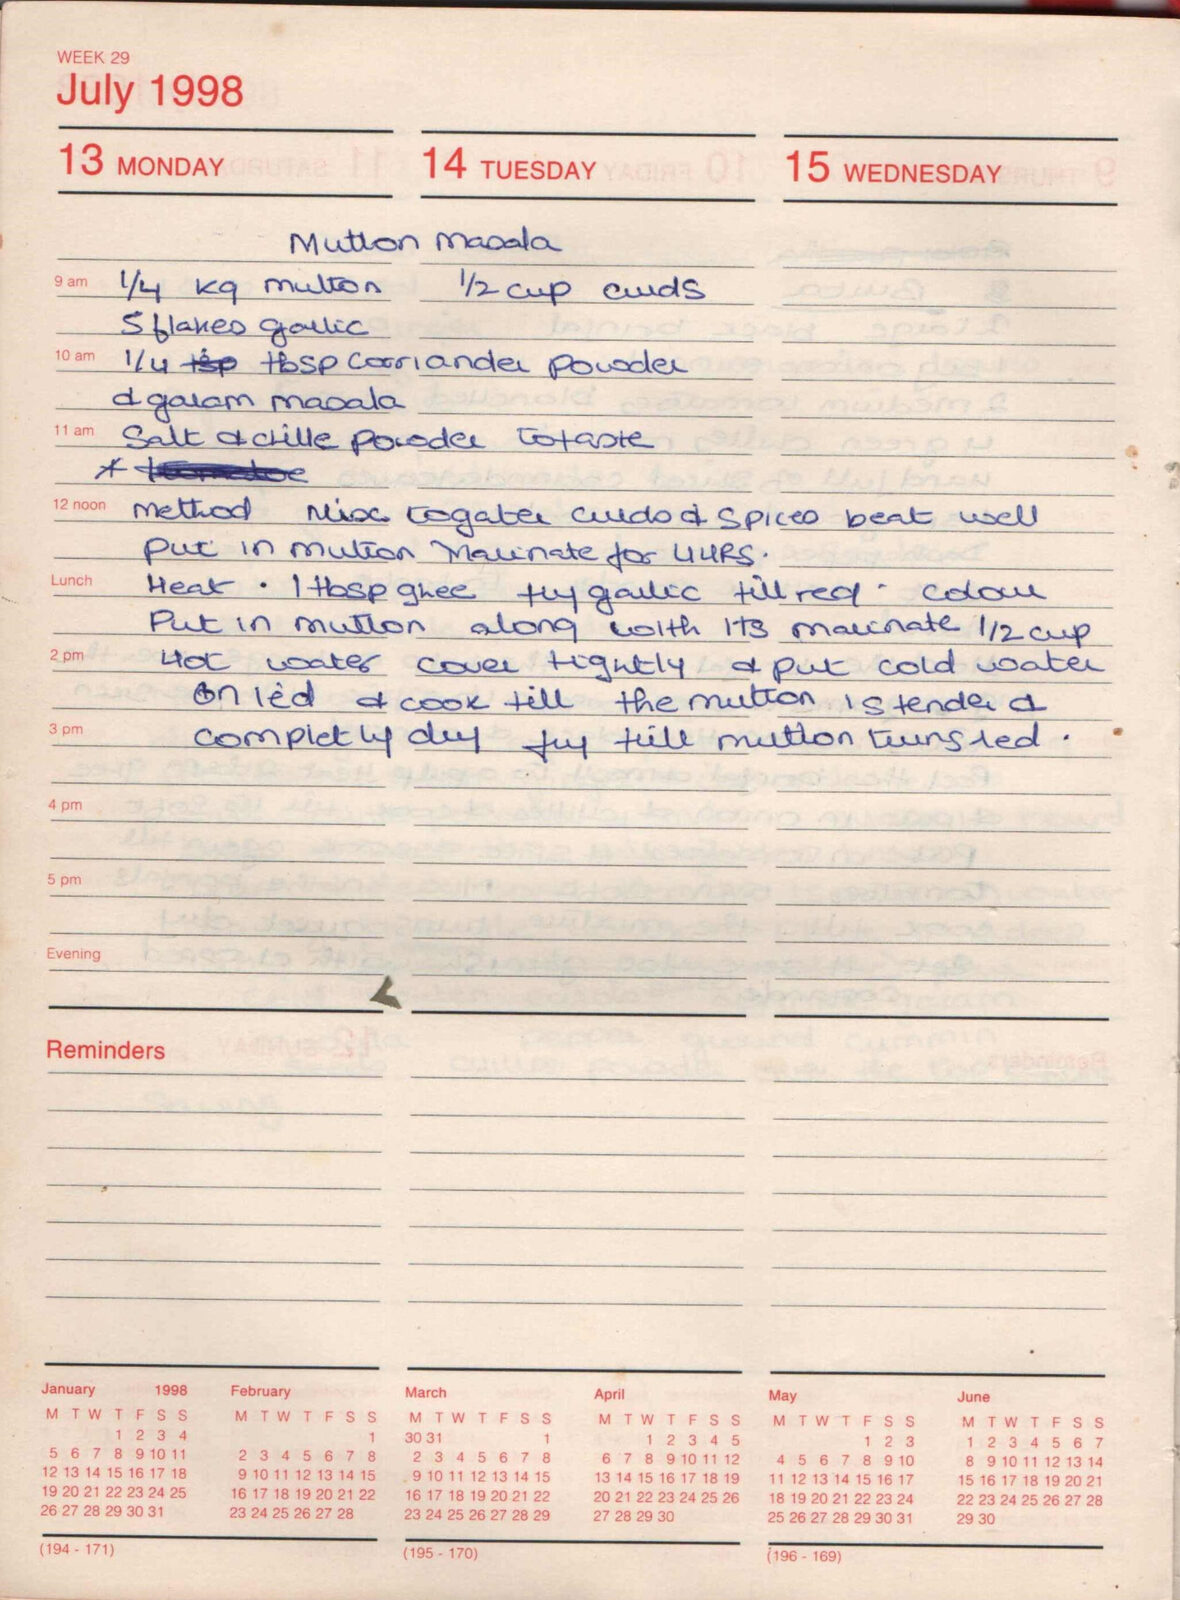 WEEK 29
July 1998
13 MONDAY 14 TUESDAY 15 WEDNESDAY
Mutton masala
9 am 1/4 kg mutton 1/2 cup curds
5 flakes garlic
10 am 1/4 tsp tbsp corriander powder
& garam masala
11 am Salt & chille powder to taste
*
12 noon method Mix togater curds & spices beat well
put in mutton Marinate for 4 HRS.
Lunch Heat . 1 tbsp ghee fry garlic till red colour
Put in mutton along with its marinate 1/2 cup
2 pm Hot water cover tightly & put cold water
on lèd & cook till the mutton is tender &
3 pm completly dry fry till mutton turns red .
4 pm
5 pm
Evening
Reminders
January 1998 February March April May June
M T W T F S S M T W T F S S M T W T F S S M T W T F S S M T W T F S S M T W T F S S
1 2 3 4 1 30 31 1 1 2 3 4 5 1 2 3 1 2 3 4 5 6 7
5 6 7 8 9 10 11 2 3 4 5 6 7 8 2 3 4 5 6 7 8 6 7 8 9 10 11 12 4 5 6 7 8 9 10 8 9 10 11 12 13 14
12 13 14 15 16 17 18 9 10 11 12 13 14 15 9 10 11 12 13 14 15 13 14 15 16 17 18 19 11 12 13 14 15 16 17 15 16 17 18 19 20 21
19 20 21 22 23 24 25 16 17 18 19 20 21 22 16 17 18 19 20 21 22 20 21 22 23 24 25 26 18 19 20 21 22 23 24 22 23 24 25 26 27 28
26 27 28 29 30 31 23 24 25 26 27 28 23 24 25 26 27 28 29 27 28 29 30 25 26 27 28 29 30 31 29 30
(194 - 171) (195 - 170) (196 - 169)